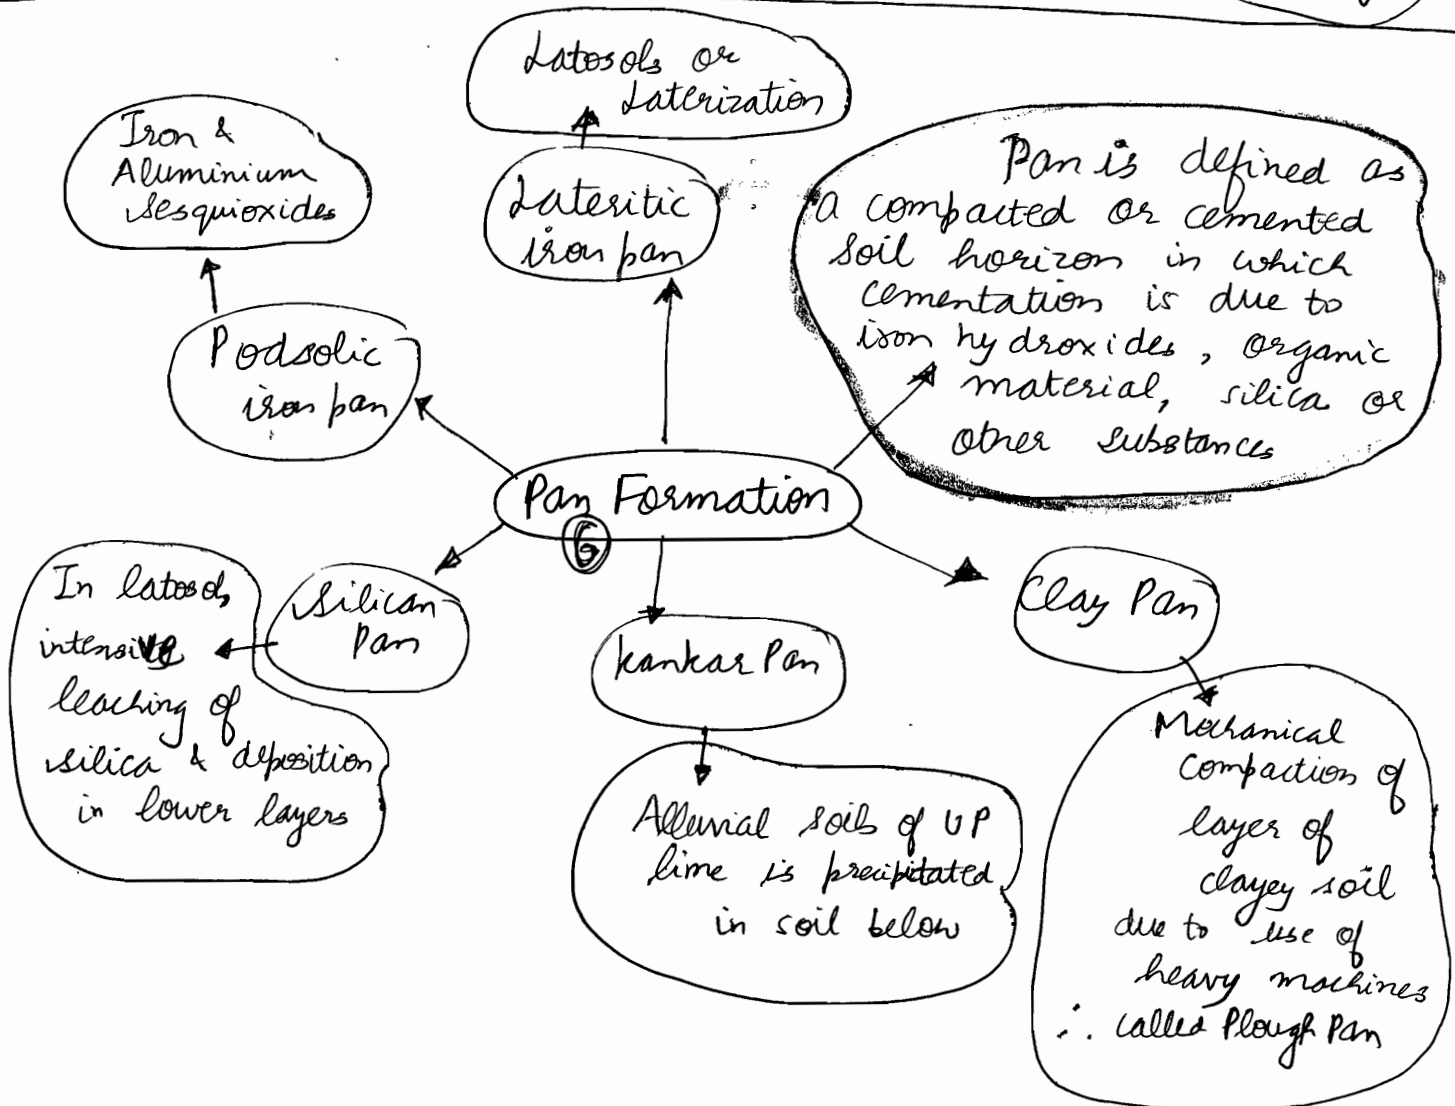 Latosols or
Laterization
Iron &
Aluminium
sesquioxides
Lateritic
iron pan
Pan is defined as
a compacted or cemented
soil horizon in which
cementation is due to
iron hydroxides, organic
material, silica or
other substances
Podsolic
iron pan
Pan Formation
6
In latosols
intensive
leaching of
silica & deposition
in lower layers
Silican
Pan
Kankar Pan
Alluvial soils of UP
lime is precipitated
in soil below
Clay Pan
Mechanical
compaction of
layer of
clayey soil
due to use of
heavy machines
∴ called Plough Pan